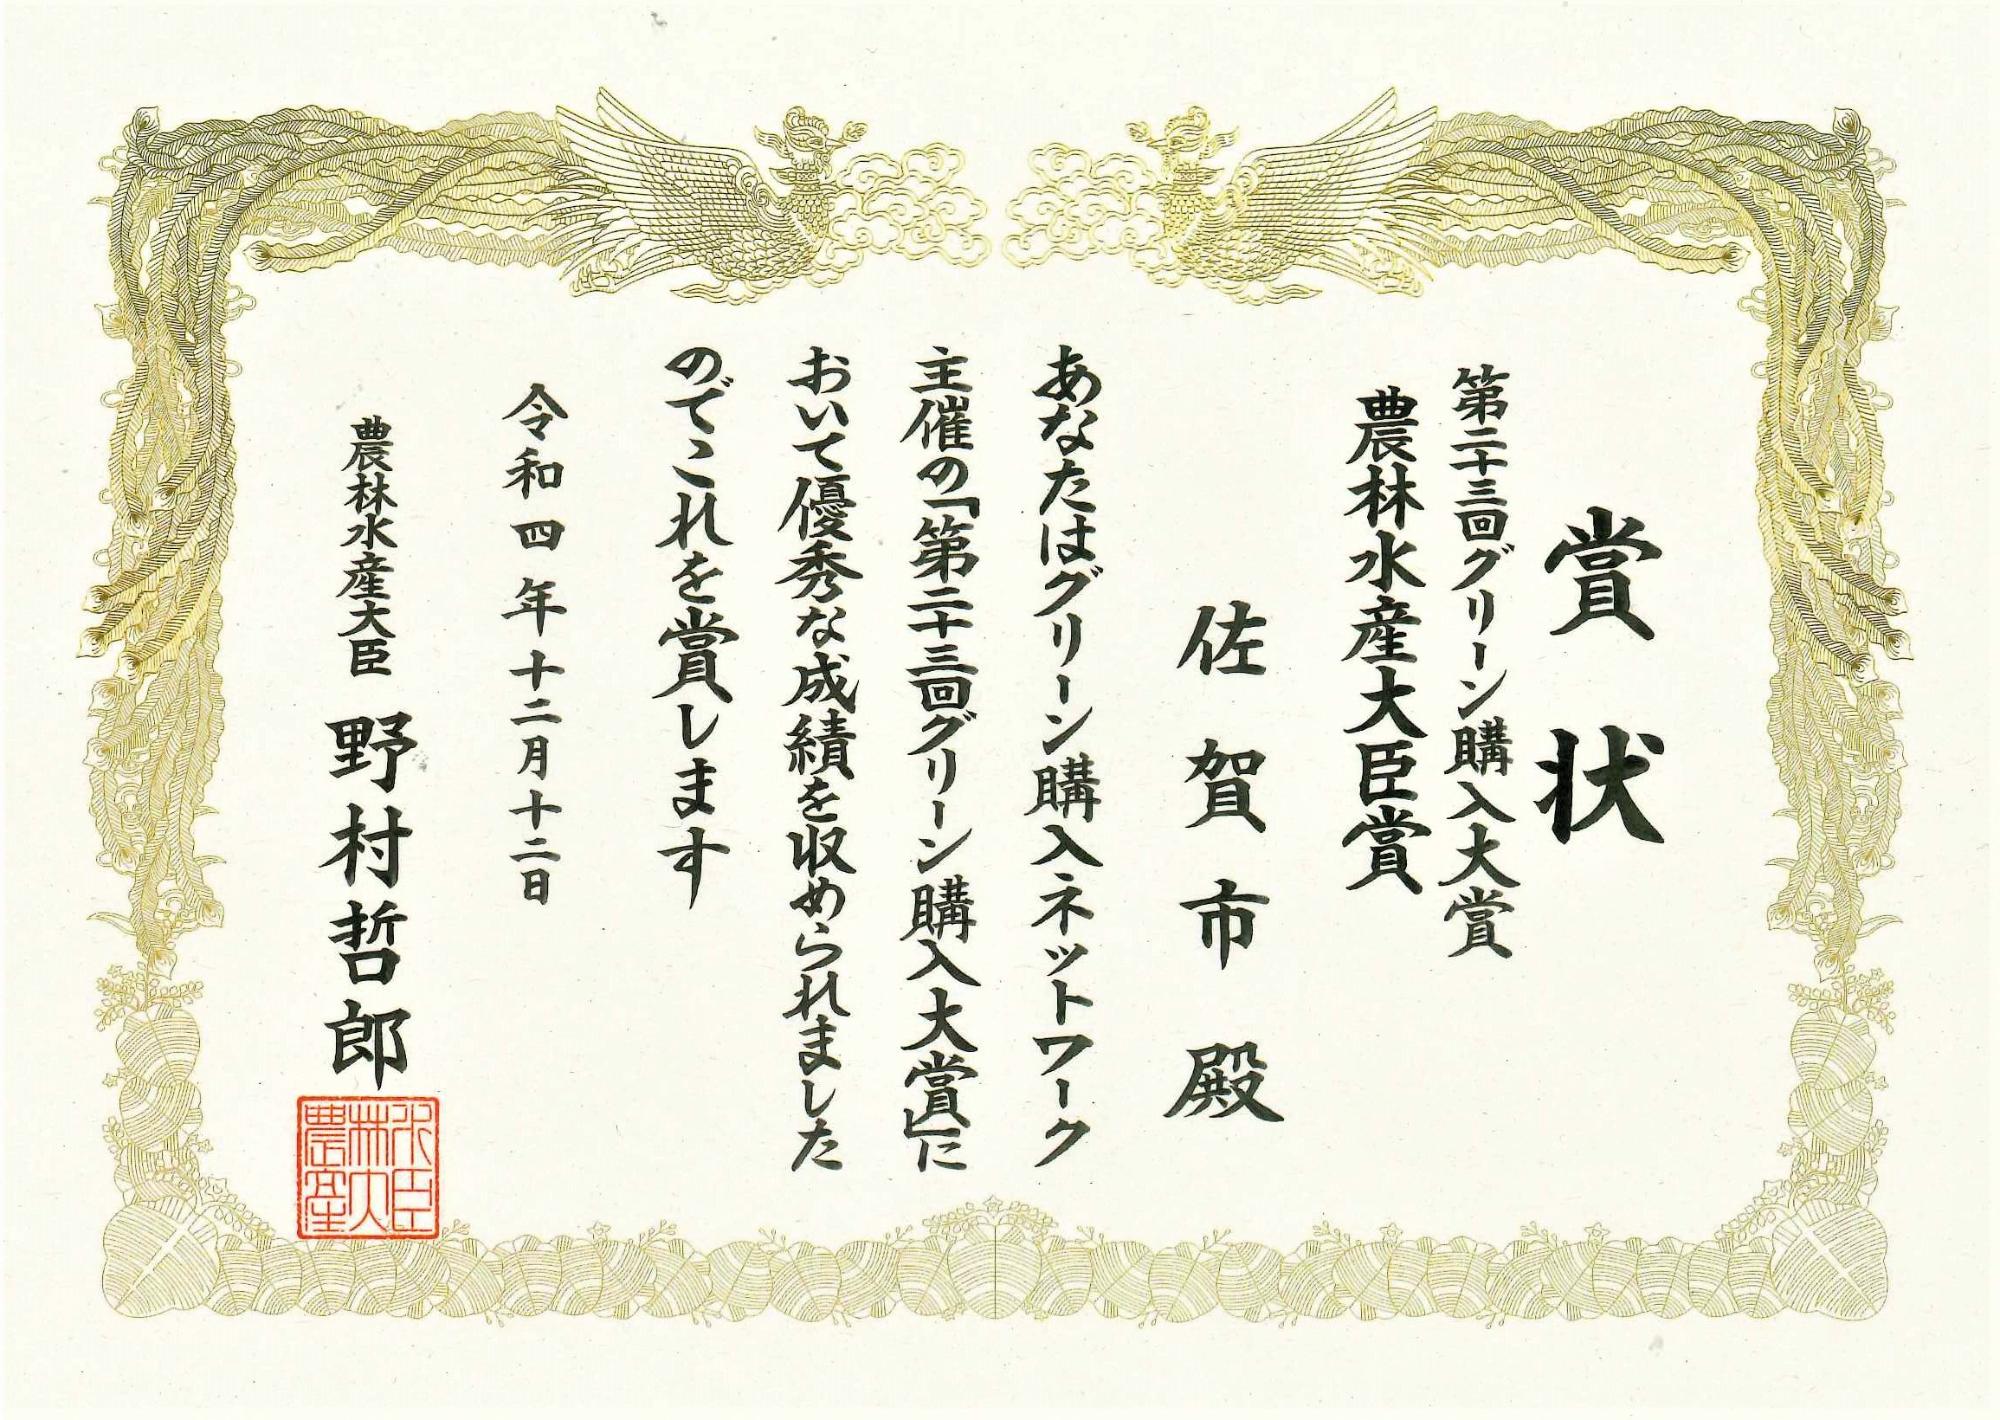 賞状
第二十三回グリーン購入大賞
農林水産大臣賞
佐賀市殿
あなたはグリーン購入ネットワーク
主催の「第二十三回グリーン購入大賞」に
おいて優秀な成績を収められました
のでこれを賞します
令和四年十二月十二日
農林水産大臣 野村哲郎
農林水産大臣